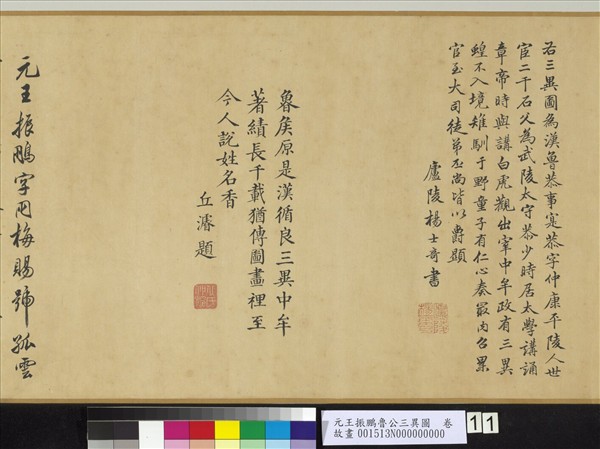 右三異圖為漢魯恭事寔恭字仲康平陵人世
宦二千石父為武陵太守恭少時居太學講誦
章帝時與講白虎觀出宰中牟政有三異
蝗不入境雉馴于野童子有仁心奏最内召累
官至大司徒弟丕尚皆以爵顯
廬陵楊士奇書
魯侯原是漢循良三異中牟
著績長千載猶傳圖畫裡至
今人說姓名香
丘濬題
元王振鵬字朋梅賜號孤雲
元王振鵬魯公三異圖 卷
故畫001513N000000000
11